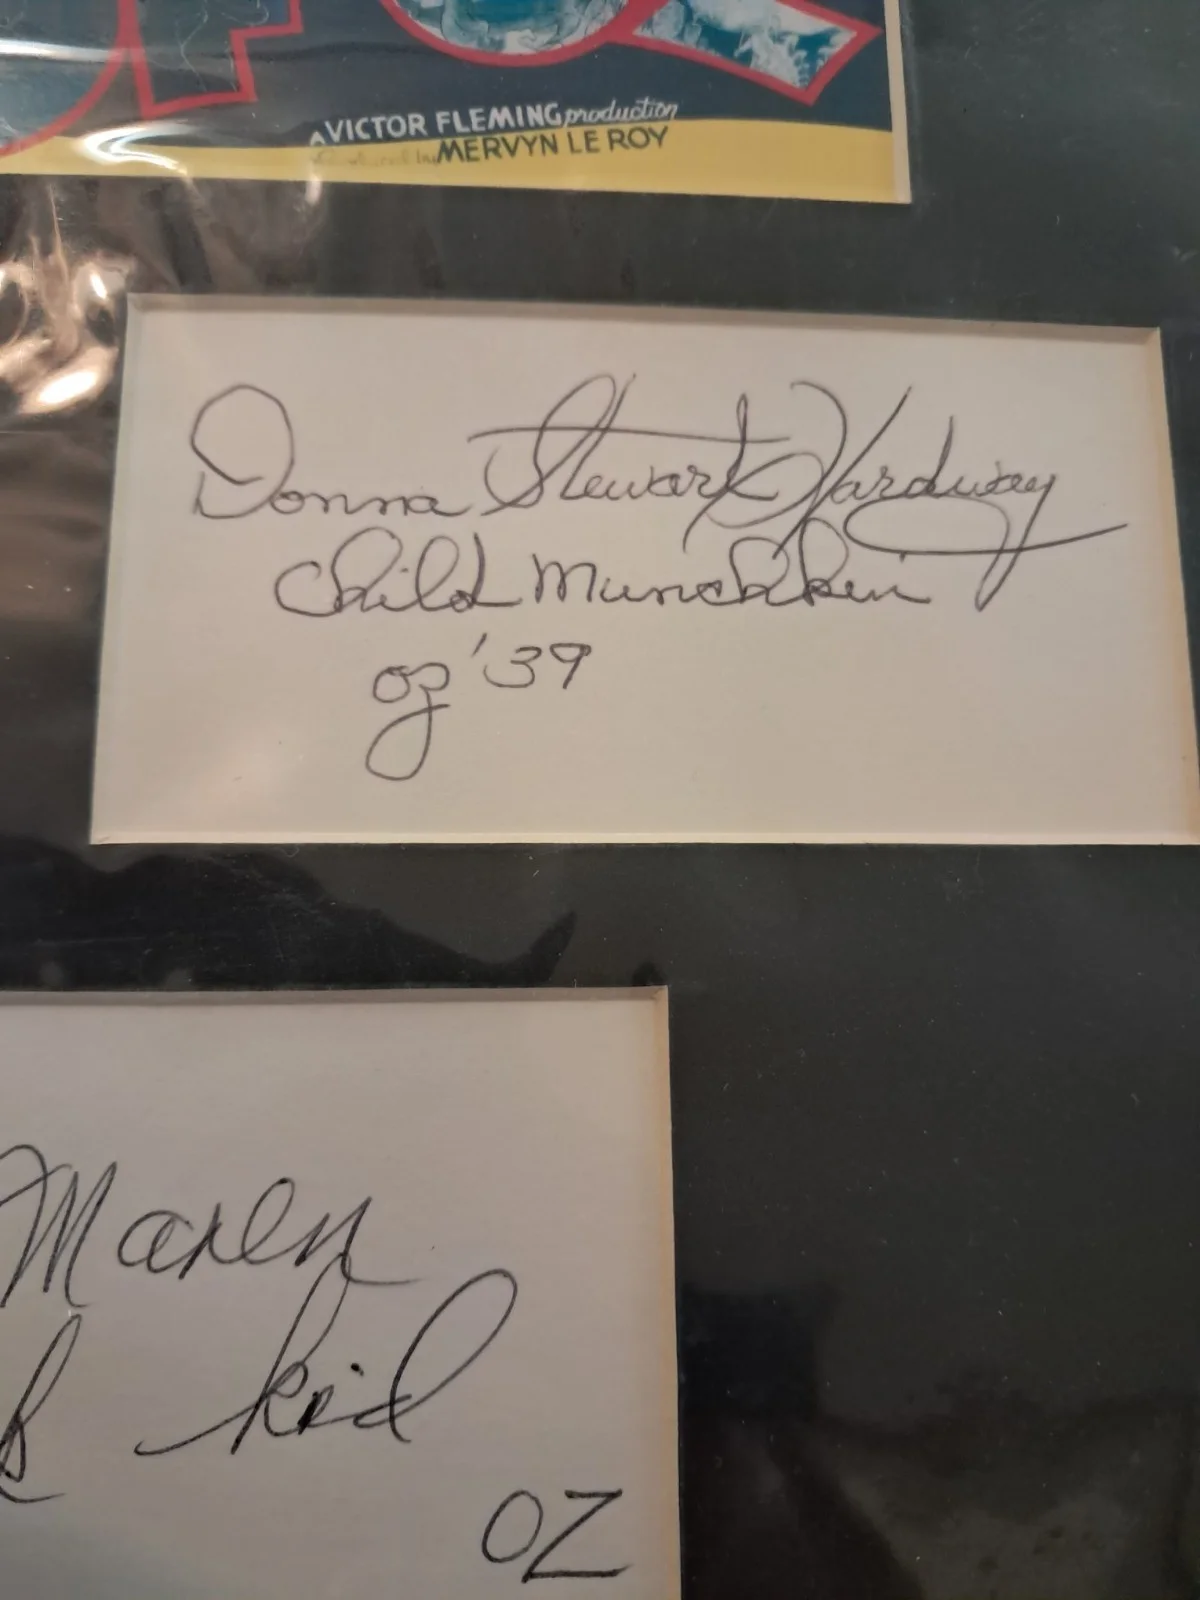 A VICTOR FLEMING production
Produced by MERVYN LE ROY
Donna Stewart Hardway
Child Munchkin
Oz '39
Maren
kid
OZ